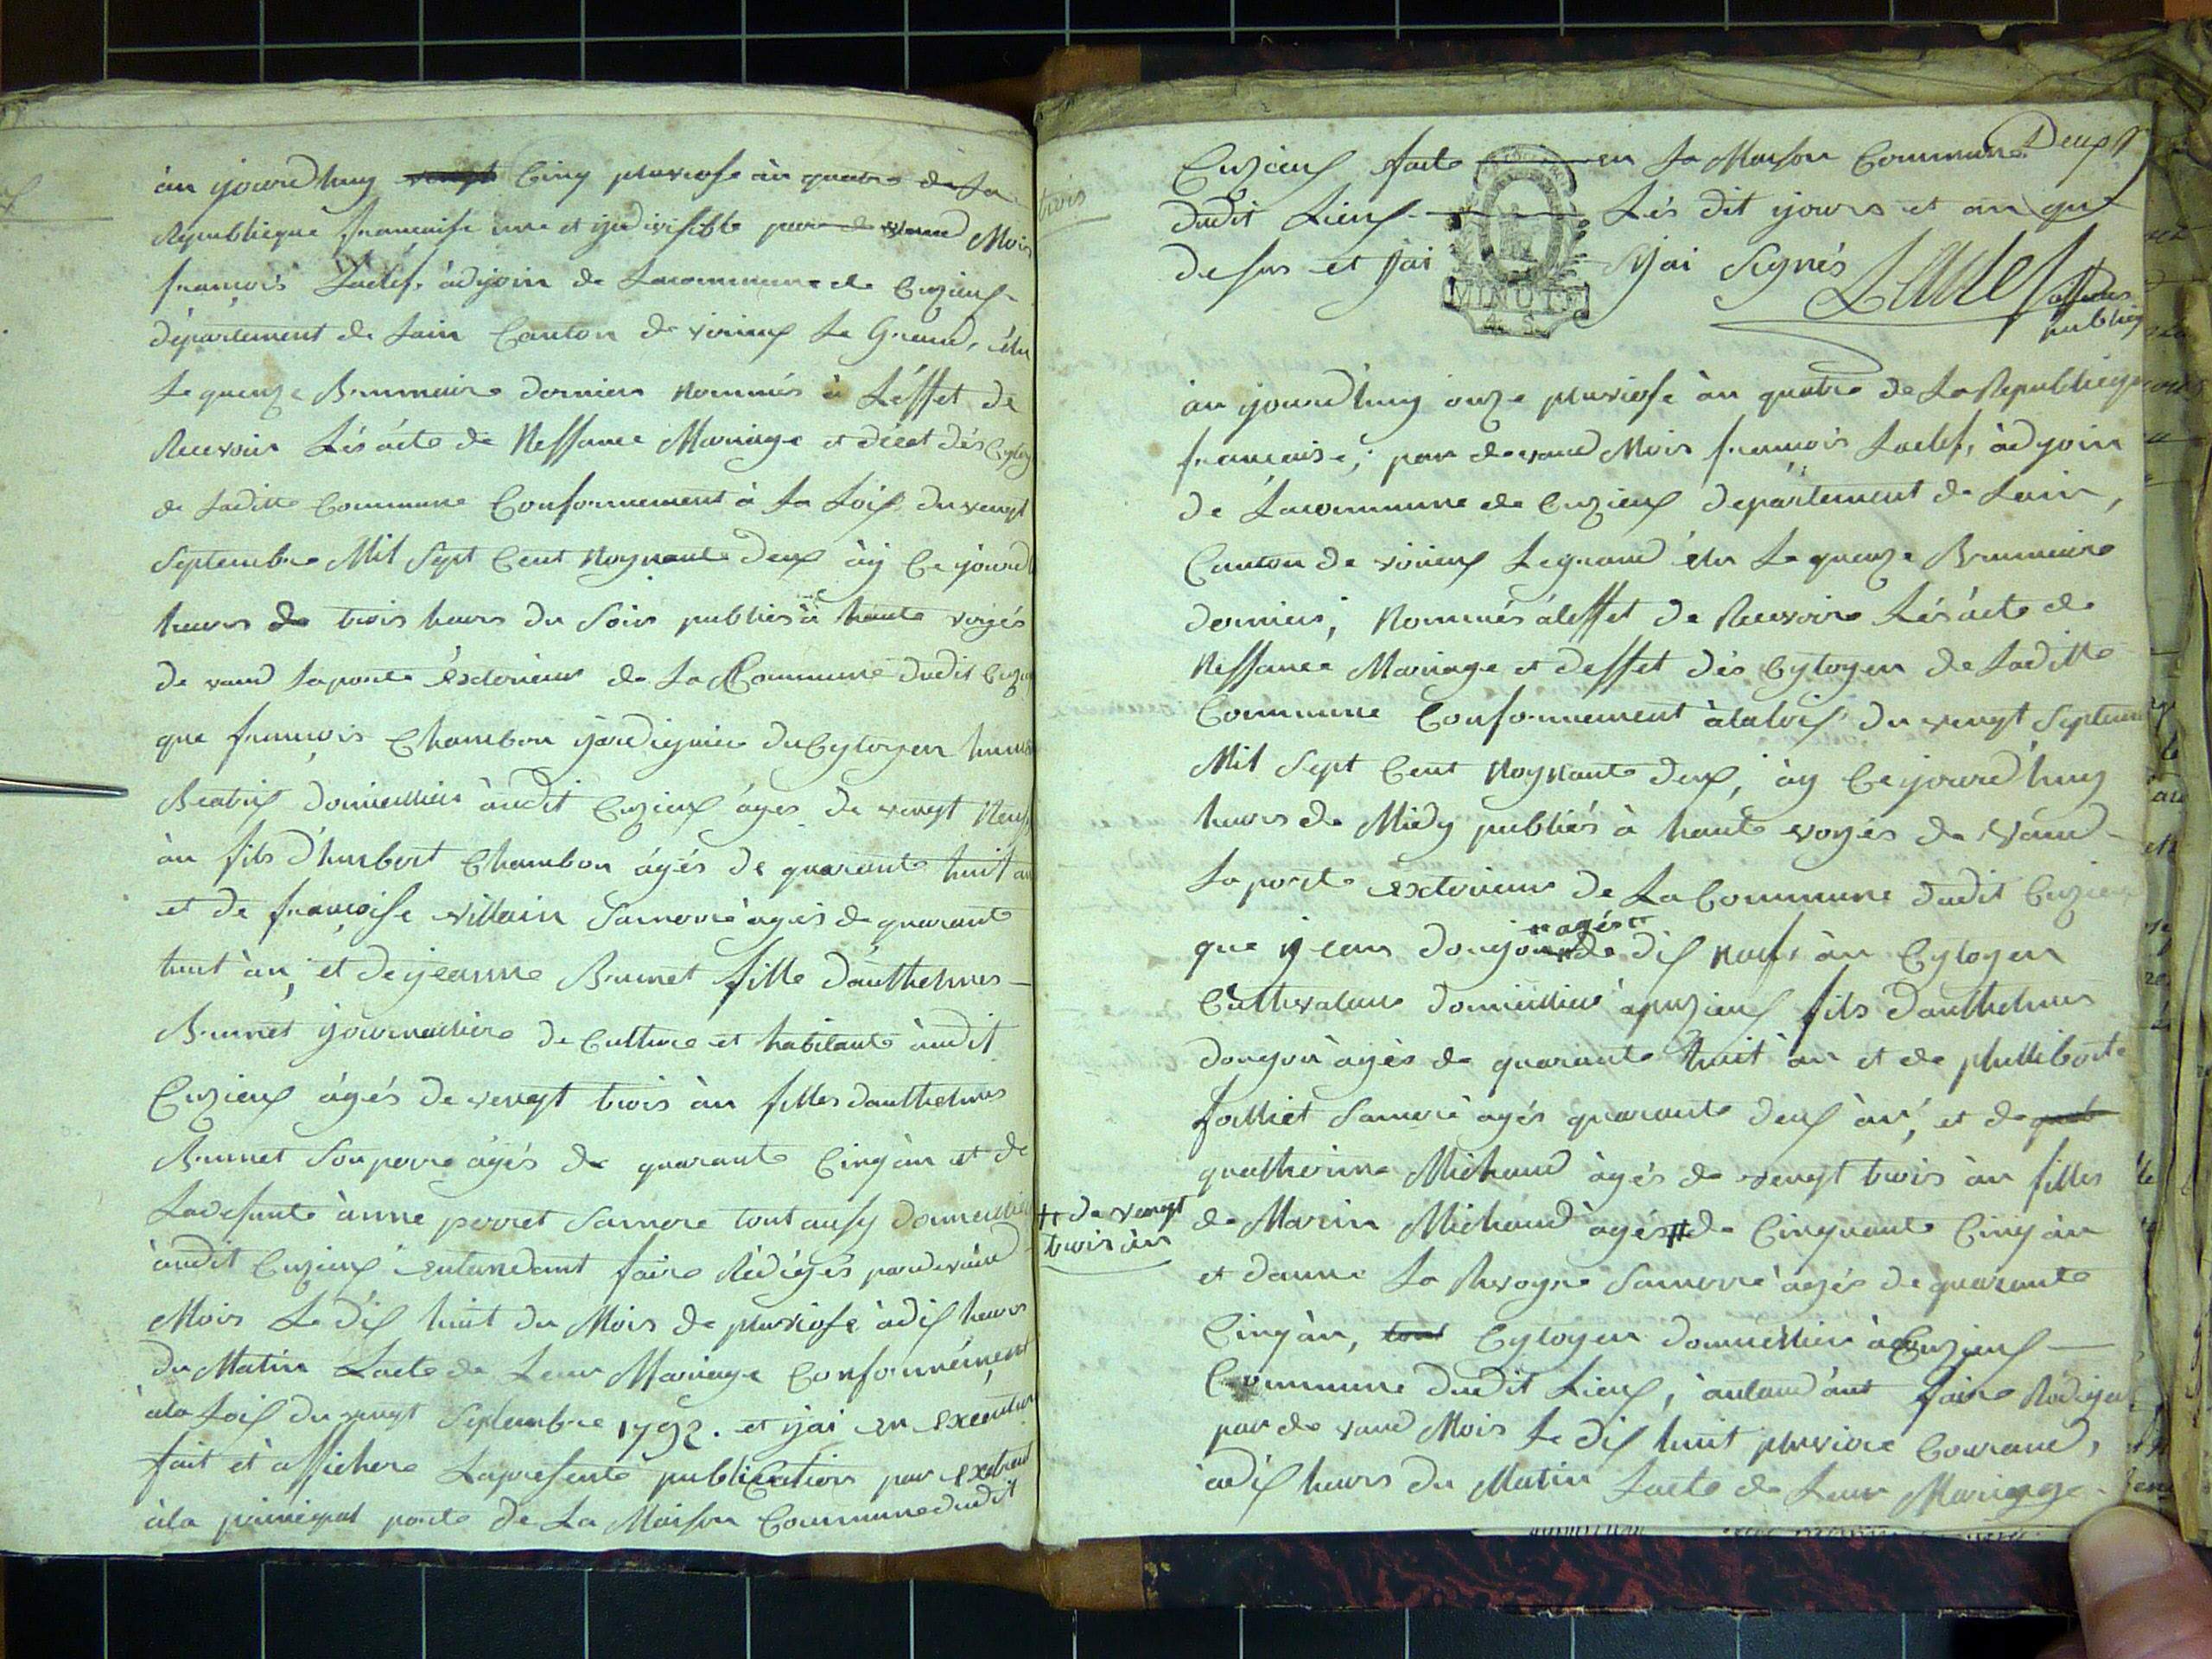 àn ijourd'huy vengt Cinq pluviose àn quatre de La
Republicque francaise une et yndivisible par de vand Mois
francois Laclef. àdjoin de Lacommune de Cuzieux
département de Lain Canton de virieux Le Grand, élu
Le quenze Brummaire dernier Nommés à L'éffet de
Recevoir Lés àcte de Nessance Mariage et décet dés
de Laditte Commune Conformement à La Loix du vengt
Septembre Mil Sept Cent Noynante deux ày Ce ijourd
heurs de trois heurs du Soir publiés à haute voyés
de vand Laporte éxterieur de La Commune dudit
que francois Chambon ijardignier du Cytoyen
Beatrix domicillier àudit Cuzieux àges de vengt Neuf
àn fils d'humbert Chambon àgés de quarante huit an
et de françoise villain Samerre àgés de quarante
huit àn, et de ijeanne Brunet fille d'authelmes
Brunet ijournallière de Culture et habitante àudit
Cuzieux àgés de vengt trois àn filles dauthelmes
Brunet Son perre àgés de quarante Cinq àn et de
Ladefunte ànne perret Samere tout ausy domicillier
àudit Cuzieux entandant faire Rédigés pardevand
Mois Le dix huit du Mois de pluviose àdix heurs
du Matin Lacte de Leur Mariage Conformément
àla Loix du vengt Septembre 1792. et ijai en execution
fait et àfficher Lapresente publication par extrait
àla principal porte de La Maison Commune dudit
trois
Deux
Cuzieux faite en La Maison Commune
dudit Lieux Lés dit ijours et an que
desus et ijai Sijai Signés Laclef officier
public
MINUTE
4. S.
àn ijourd'huy onze pluviose àn quatre de La Republicque
francaise; par devand Mois francois Laclef, àdjoin
de Lacommune de Cuzieux département de Lain,
Canton de virieux Legrand élu Le quenze Brummaire
dernier; Nommés àleffet de Recevoire Lés àcte de
Nessance Mariage et deffet dés Cytoyen de Laditte
Commune Conformement àlaloix du vengt Septem
Mil Sept Cent Noynante deux, ày Ceijourd'huy
heurs de Midy publiés à haute voyés de vand
La porte exterieur de La Commune dudit Cuzieux
àgés
que ijean dongon de dix neuf àn Cytoyen
Culthevateur domicillier àCuzieux fils dauthelmes
dongon àgés de quarante huit àn et de phillìberte
folliet Samerre àgés quarante deux àn, et de
quatherinne Michaud àgés de vengt trois àn filles
# de vengt
trois àn
de Marin Michaud àgés # de Cinquante Cinq àn
et danne La Samerre àgés de quarante
Cinq àn, tout Cytoyen domicillier àCuzieux
Commune dudit Lieux, àntandant faire Rédiger
par de vand Mois Le dix huit pluviose Courand,
àdix heurs du Matin Lacte de Leur Mariage